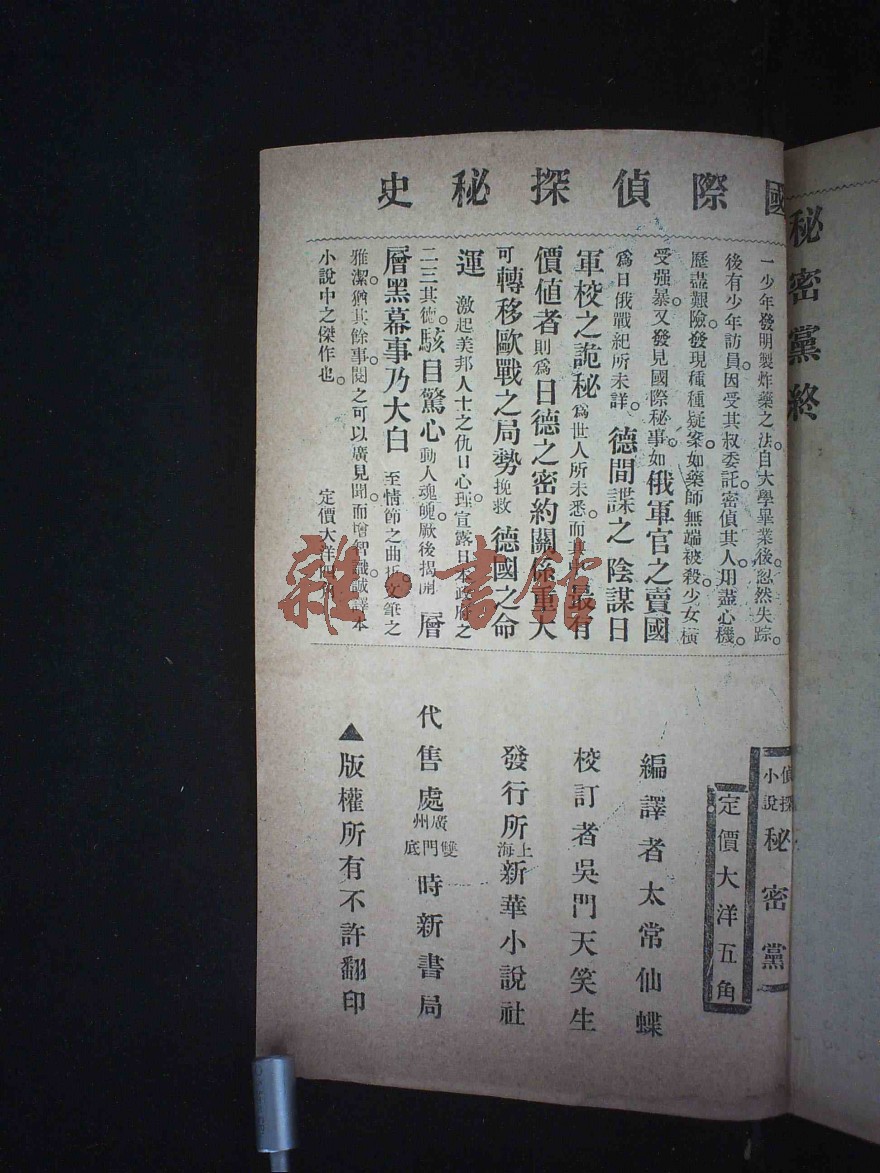 秘密黨終
國際偵探秘史
一少年發明製炸藥之法。自大學畢業後。忽然失踪。
後有少年訪員。因受其叔委託。密偵其人。用盡心機。
歷盡艱險。發現種種疑案。如藥師無端被殺。少女橫
受强暴。又發見國際秘事。如俄軍官之賣國
爲日俄戰紀所未詳。德間諜之陰謀日
軍校之詭秘爲世人所未悉。而其最有
價値者則爲日德之密約關係重大
可轉移歐戰之局勢挽救德國之命
運。激起美邦人士之仇日心理。宣露日本政府之
二三其德。駭目驚心動人魂魄。厥後揭開層
層黑幕事乃大白至情節之曲折。文筆之
雅潔。猶其餘事。閱之可以廣見聞。而增智識。誠譯本
小說中之傑作也。定價大洋四角
偵探小說 秘密黨
定價大洋五角
編譯者太常仙蝶
校訂者吳門天笑生
發行所上海新華小說社
代售處廣州雙門底時新書局
▲版權所有不許翻印
雜·書館